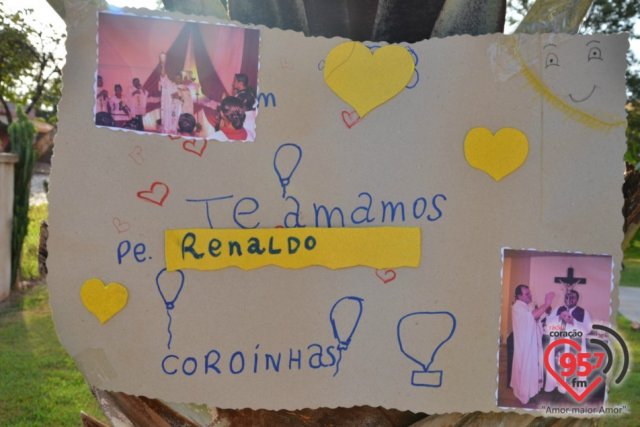 Te amamos
Pe. Renaldo
COROíNHAS
rádio
coração
95.7
fm
"Amor maior Amor"